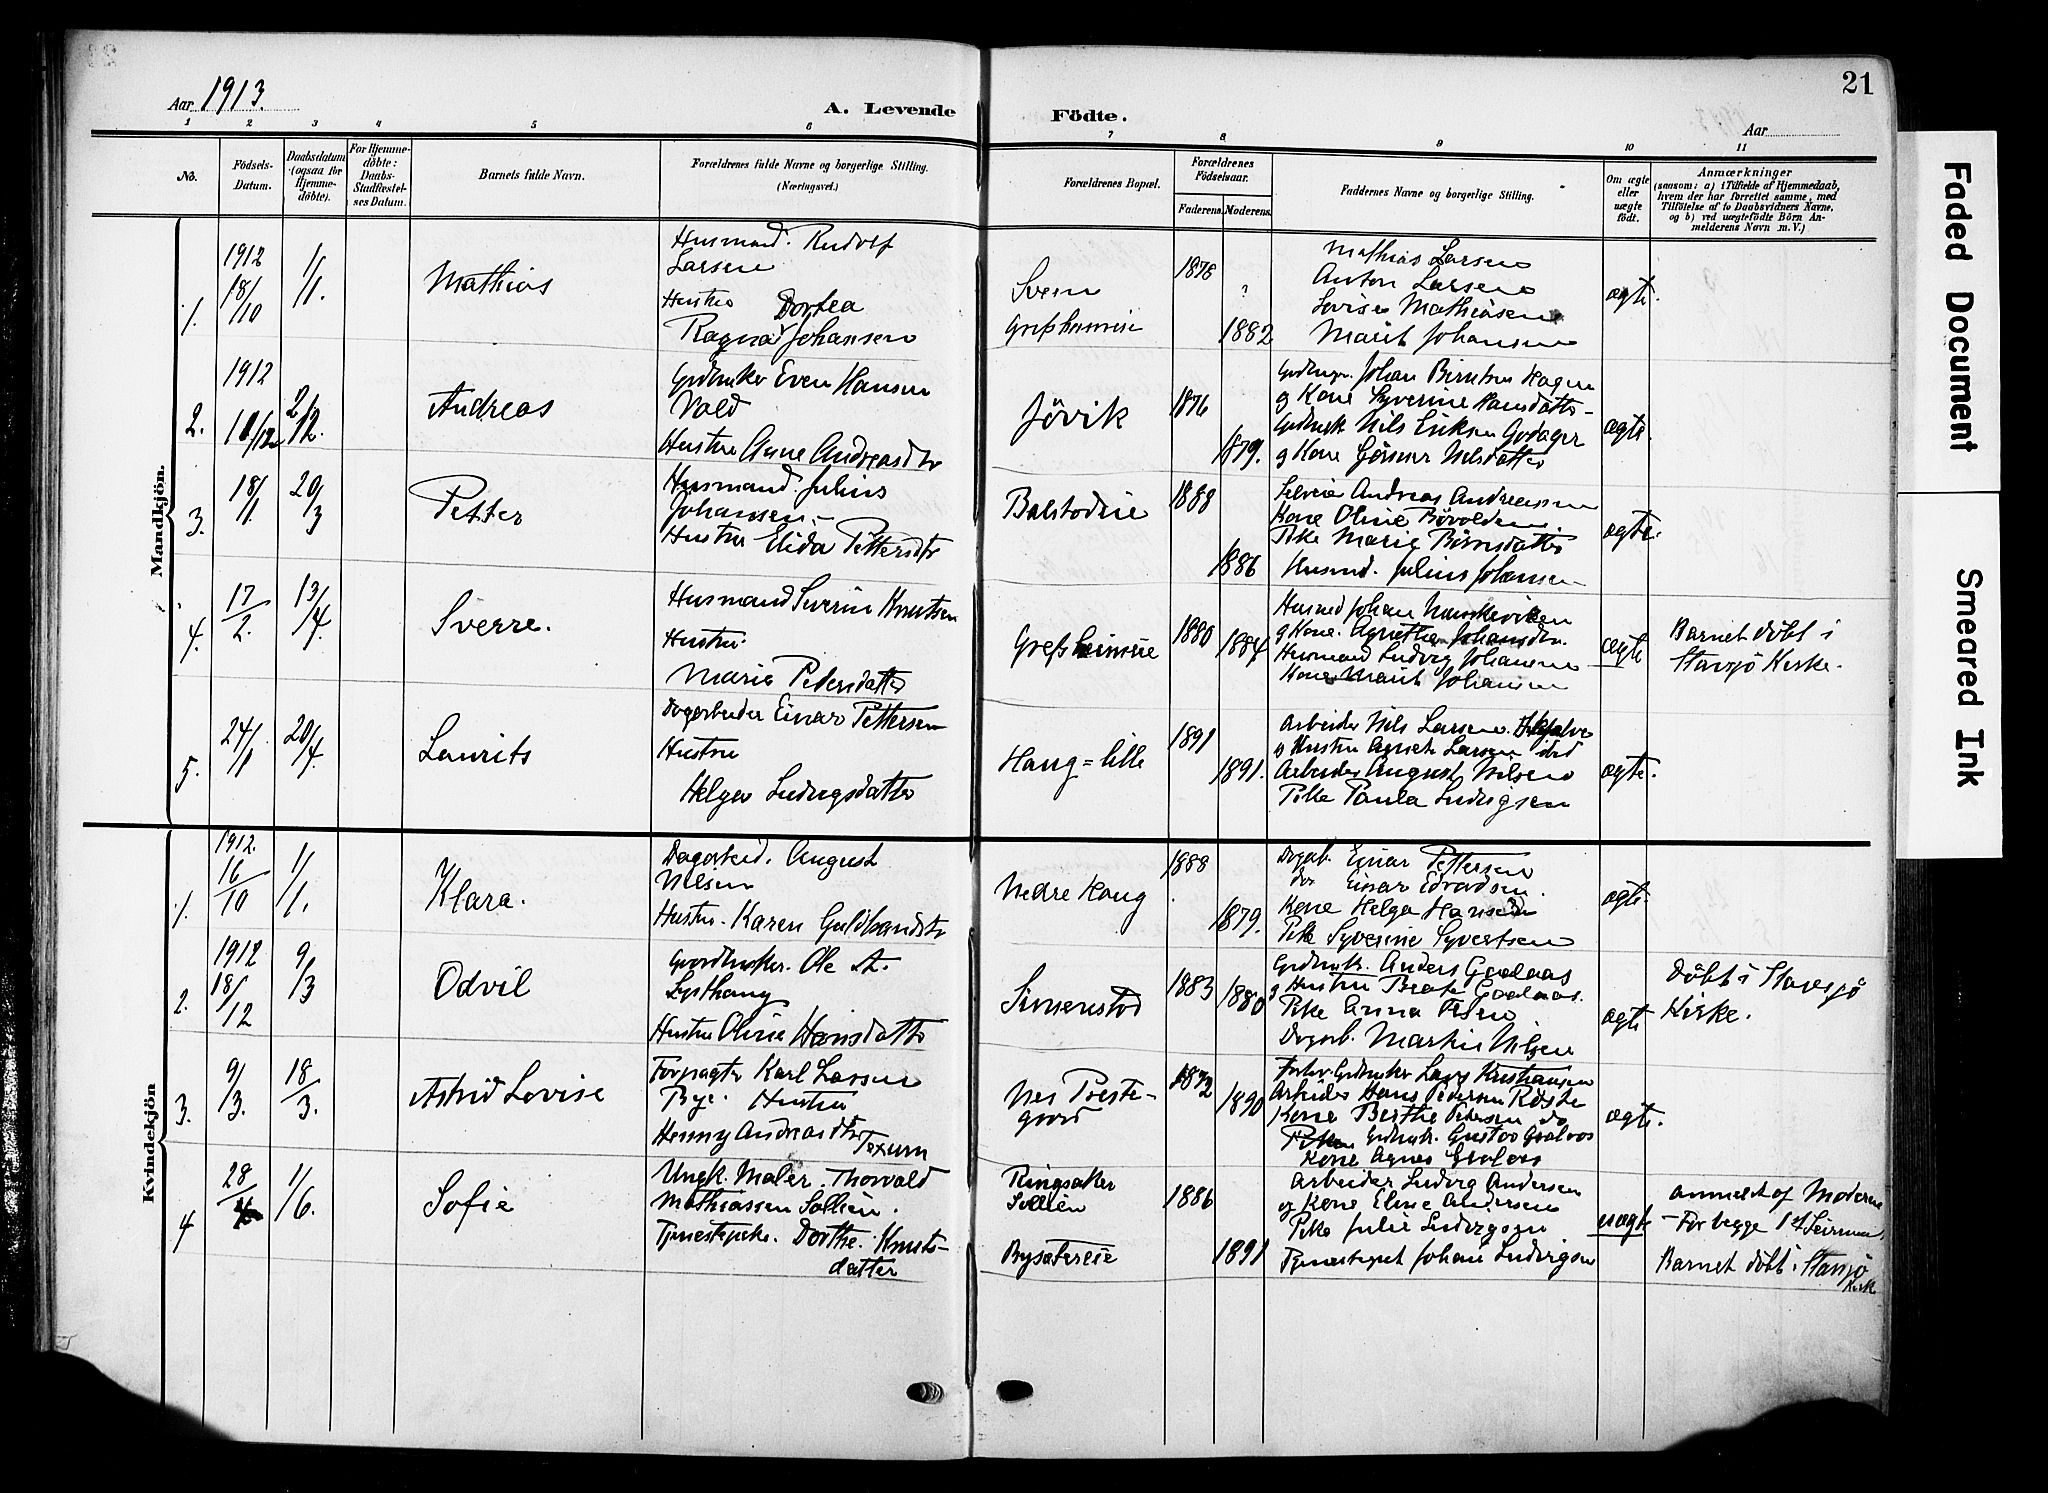 21
Aar 1913.
A. Levende Födte.
Aar
1 2 3 4 5 6 7 8 9 10 11
No.
Födsels-Datum.
Daabsdatum (ogsaa for Hjemme-døbte).
For Hjemme-døbte: Daabs-Stadfæstel-ses Datum.
Barnets fulde Navn.
Forældrenes fulde Navne og borgerlige Stilling. (Næringsvei.)
Forældrenes Bopæl.
Forældrenes Födselsaar.
Faderens. Moderens.
Faddernes Navne og borgerlige Stilling.
Om ægte eller uægte födt.
Anmærkninger
(saasom: a) i Tilfælde af Hjemmedaab,
hvem der har forrettet samme, med
Tilföielse af to Daabsvidners Navne,
og b) ved uægtefödte Börn An-
melderens Navn m.V.)
Mandkjön.
1. 1912 18/10 1/1. Mathias
Husmand. Rudolf
Larsen
Hustru Dortea
Ragna Johansen
Svem
Grefsheimeie
1878 1882
Mathias Larsen
Anton Larsen
Lovise Mathiasen
Marit Johansen
ægte.
2. 1912 2/12. Andreas
Grdbruker Even Hansen
Vold
Hustru Anne Andreasdtr
Jövik
1876 1879.
Johan Berntsen Hagen
g Kone Syverine Hansdatter
Grdbruk Nils Eriksen Godager
g Kone Nilsdatter
ægte.
3. 18/1. 20/3 Petter
Husmand. Julius
Johansen.
Hustru Elida Pettersdtr
Balstadeie
1888 1886
Andreas Andreassen
Kone Oline Bövolden
Pike Marie
Husmd. Julius Johansen
ægte.
4. 17/2. 13/4. Sverre.
Husmand Severin Knutsen
Hustru
Marie Pedersdatter
Grefsheimeie
1880 1884
Husmd Johan
g Kone. Agnethe Johansdtr.
Husmand Ludvig Johansen
Kone Marit Johansen
ægte
Barnet döbt i
Stavsjö Kirke.
5. 24/1 20/4. Laurits
Dagarbeider Einar Pettersen
Hustru
Helga Ludvigsdatter
Haug=lille
1891 1891.
Arbeider Nils Larsen
g Hustru Agnete Larsen
Arbeider August Nilsen
Pike Paula Ludvigsen
ægte.
Kvindekjön
1. 1912. 16/10 1/1. Klara.
Dagarbeid. August
Nilsen
Hustru. Karen Guldbrandsdtr
Nedre Haug
1888 1879.
Dagarb. Einar Pettersen
do Einar Edvardsen.
Kone Helga Hansen
Pike Syverine Syvertsen
ægte.
2. 1912 18/12 9/3 Odvil
Gaardbruker. Ole A.
Lysthaug
Hustru Oline Hansdatter
Simenstad
1883 1880
Grdbruk. Anders Gaalaas
g Hustru Beate Gaalaas.
Pike Anna
Dagarb. Martin Nilsen
ægte
Döbt i Stavsjö
Kirke.
3. 9/3. 18/3. Astrid Lovise
Forpagter Karl Larsen
Bye. Hustru
Henny Andreasdtr
Texum
Nes Preste-
gaard
1872 1890
Grdbruker Lars Kristiansen
Arbeider Hans Pedersen Röste
Kone Berthe Pedersen do
Grdbruk. Gustav Gaalaas
Kone Agnes Gaalaas
ægte.
4 28/4 1/6. Sofie
Ungk. Maler. Thorvald
Mathiassen Sollien.
Tjenestepike. Dorthe. Knuts-
datter
Ringsaker
Sollien
Bysætereie
1886 1891
Arbeider Ludvig Andersen
og Kone Eline Andersen
Pike Julie Ludvigsen
Johan Ludvigsen
uægte
anmeldt af Moderen
- For begge 1st Leierm.
Barnet döbt i Stavsjö
Kirk
Faded Document
Smeared Ink